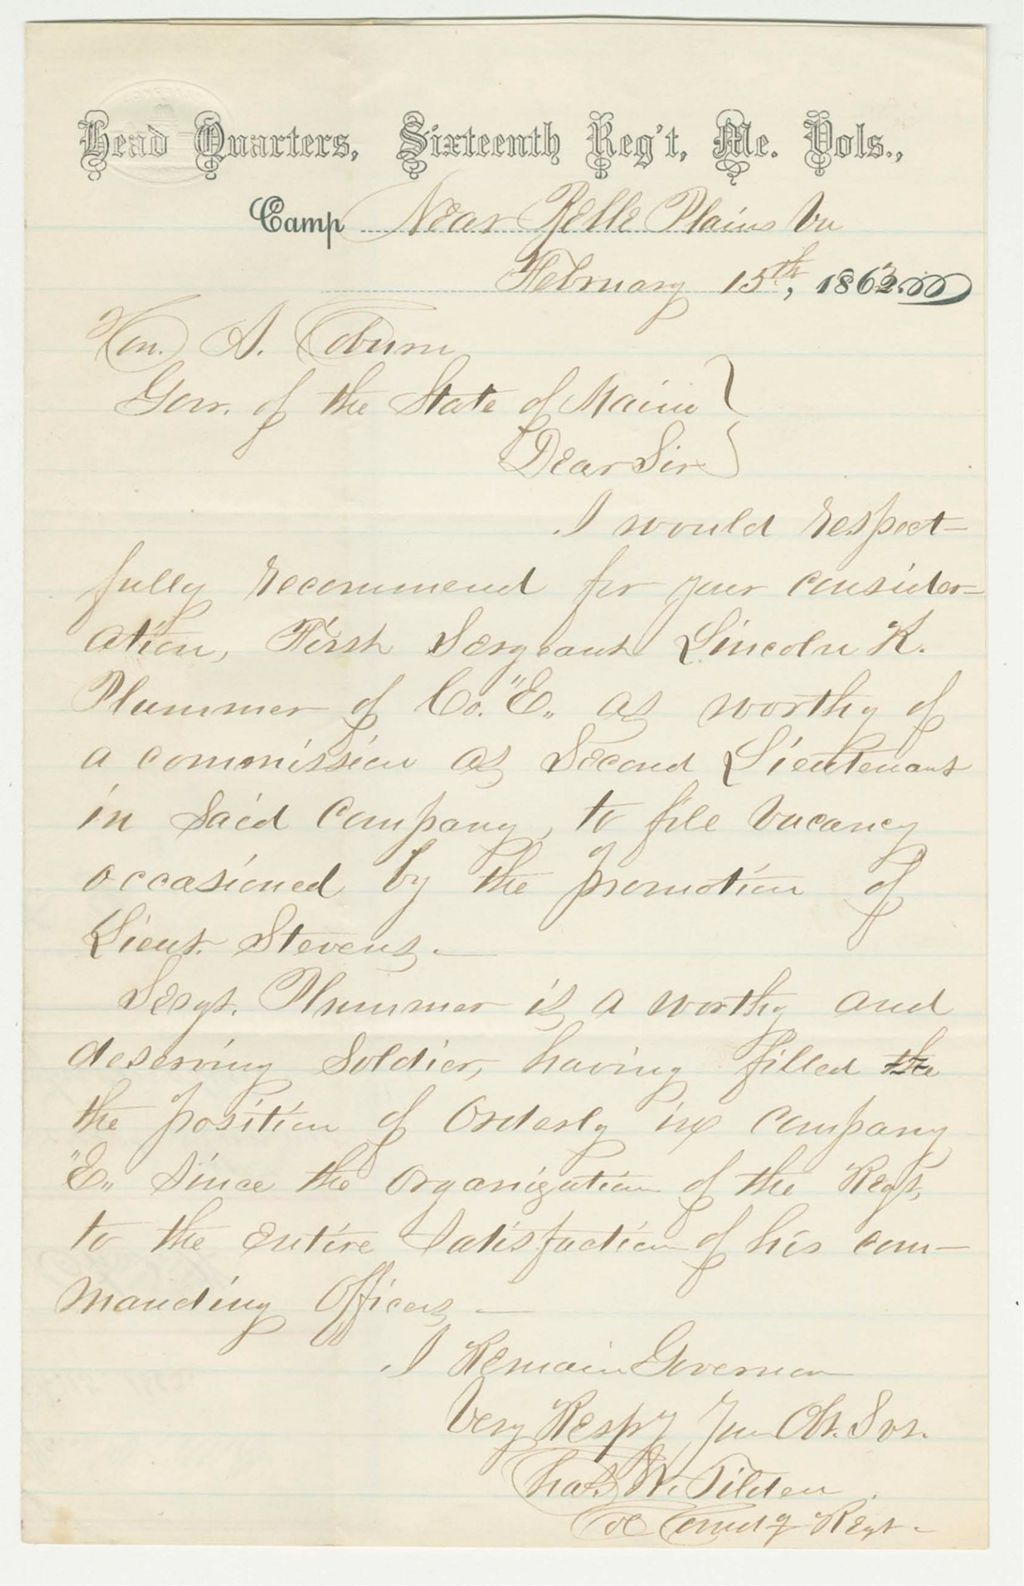 Head Quarters, Sixteenth Reg't, Me. Vols.,
Camp Near Belle Plains Va
February 15th, 1863
Hon. A. Coburn
Gov. of the State of Maine
Dear Sir
I would respect-
fully recommend for your consider-
ation, First Sergeant Lincoln K.
Plummer of Co. "E" as worthy of
a commission as Second Lieutenant
in said Company, to file vacancy
occasioned by the promotion of
Lieut. Stevens.
Sergt. Plummer is a worthy and
deserving Soldier, having filled the
the position of Orderly in company
"E" since the organization of the Regt,
to the entire satisfaction of his com-
manding Officers,
I Remain Governor
Very Respy Your Obt. Svt.
Chas W. Tilden
Col Comdg Regt.